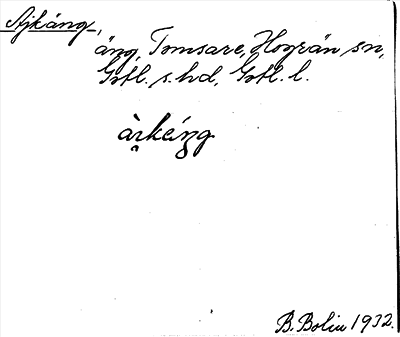 Ajkäng,
äng, Tomsare, Hogrän sn,
Gotl. s. hd, Gotl. l.
B. Bolin 1932.